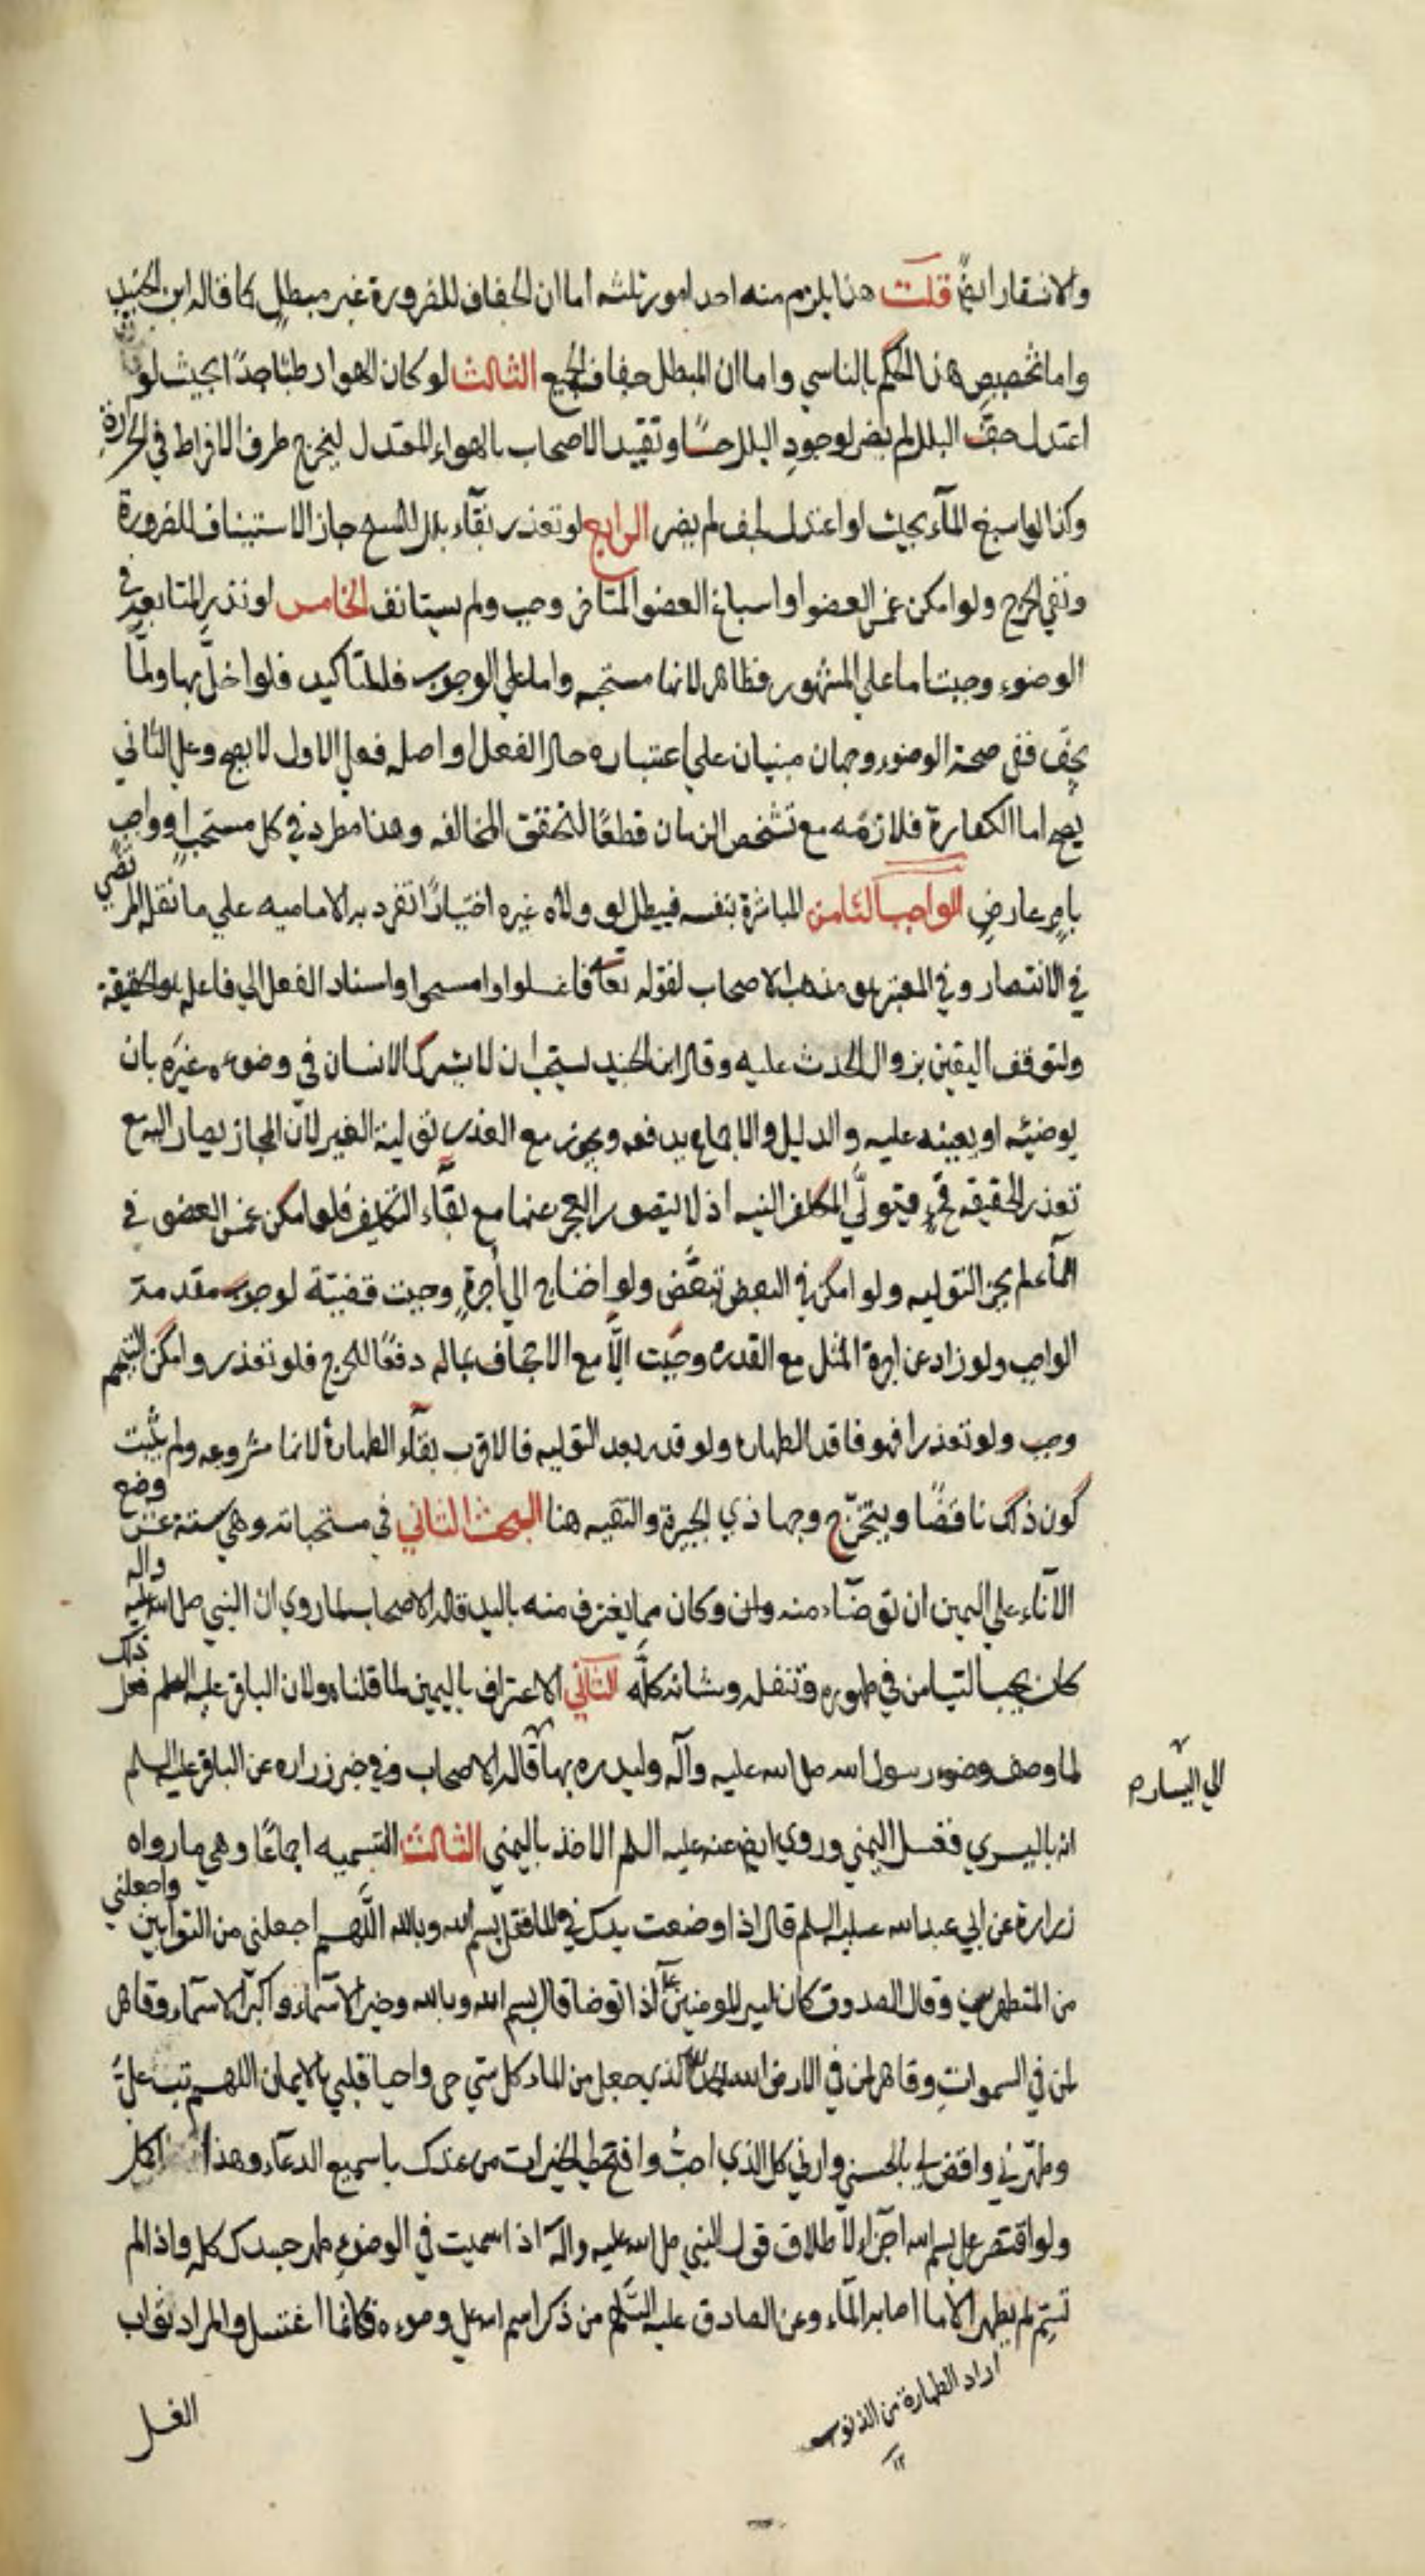 والانتقار ايضً قلت هذا يلزم منه احد امور ثلثه اما ان الجفاف للضرورة غير مبطل كما قاله ابن الجنيد
واما تخصيص هذا الحكم بالناسي واما ان المبطل جفاف الجميع الثالث لو كان الهوا رطبًا جدًا بحيث لو
اعتدل جفّ البلل لم يضر لوجودِ البلل حسًا وتقييد الاصحاب بالهواء المعتدل ليخرج طرف الافراط في الحرارةِ
وكذا لو اسبغ المآء بحيث لو اعتدل لجف لم يضر الرابع لو تعذر بقآء بلل للمسح جاز الاستيناف للضرورة
ونفي الحرج ولو امكن غمس العضو او اسباغ العضو المتاخر وجب ولم يستانف الخامس لو نذر المتابعة في
الوضوء وجبت اما على المشهور فظاهر لانها مستحبه واما على الوجوب فللتاكيد فلو اخلّ بها ولمّا
يجف ففي صحة الوضوء وجهان مبنيان على اعتبار حال الفعل او اصله فعلى الاول لا يصح وعلى الثاني
يصح اما الكفارة فلازمه مع تشخص الزمان قطعًا لتحقق المخالفه وهذا مطرد في كل مستحبٍ او واجب
بامرٍ عارضٍ الواجب الثامن المباشرة بنفسه فيبطل لو ولاه غيره اختيارًا تفرد به الاماميه على ما نقله المرتضي
في الانتصار وفي المعتبر هو مذهب الاصحاب لقوله تعا فاغسلوا وامسحوا واسناد الفعل الي فاعله هو الحقيقة
ولتوقف اليقين بزوال الحدث عليه وقال ابن الجنيد يستحب ان لا يشرك الانسان في وضوءه غيرَه بان
يوضئه او يعينه عليه والدليل والاجماع يدفعه ويجوز مع العذر تولية الغير لانّ المجاز يصار اليه مع
تعذر الحقيقه فيتولّي المكلف النيه اذ لا يتصور العجز عنها مع بقآء التكليف فلو امكن غمس العضو في
المآء لم يجز التوليه ولو امكن في البعض تبعّض ولو احتاج الي اجرةٍ وجبت قضيّة لوجوب مقدمة
الواجب ولو زاد عن اجرة المثل مع القدره وجبت الّا مع الاجحاف بماله دفعًا للحرج فلو تعذر وامكن التيمم
وجب ولو تعذرا فهو فاقد الطهاره ولو قدر بعد التوليه فالاقرب بقآء الطهارة لانها مشروعه ولم يثبت
كون ذلك ناقضًا ويتخرّج وجها ذي الجبيرة والتقيه هنا البحث الثاني في مستحباته وهي ستة عشر وضع
الآناء على اليمين ان توضّاء منه وان وكان مما يغترف منه باليد قاله الاصحاب لما روي ان النبي صلى الله عليه واله
كان يحب التيامن في طهوره وتنفله وشانه كلّه الثاني الاغتراف باليمين لما قلناه ولان الباقر عليه السلم فعل ذلك
لما وصف وضوء رسول الله صلى الله عليه وآله وليديره بها قاله الاصحاب وفي خبر زراره عن الباقر عليه السلم
الي اليساره
انه باليسري فغسل اليمني وروي ايضً عنه عليه السلم الاخذ باليمني الثالث التسميه اجماعًا وهي ما رواه
زرارة عن ابي عبدالله عليه السلم قال اذا وضعت يدك في الما فقل بسم الله وبالله اللّهم اجعلني من التوابين واجعلني
من المتطهرين وقال الصدوق كان امير المومنين ع اذا توضا قال بسم الله وبالله وخير الاسمآء واكبر الاسمآء وقاهر
لمن في السمواتِ وقاهر لمن في الارض الله الحمد لله الذي جعل من الماء كل شي حي واحيا قلبي بالايمان اللهم تب عليّ
وطهّرني واقض لي بالحسني وارني كل الذي احبّ وافتح لي الخيرات من عندك يا سميع الدعآء وهذا اكمل
ولو اقتصر على بسم الله اجزأ لاطلاق قول النبي صلى الله عليه وآله اذا سميت في الوضوء طهر جسدك كله واذا لم
تسمّ لم يطهر الّا ما اصابه المآء وعن الصادق عليه السّلم من ذكر اسم الله على وضوءه فكانما اغتسل والمراد ثواب
اراد الطهارة من الذنوب
١٢
الغسل